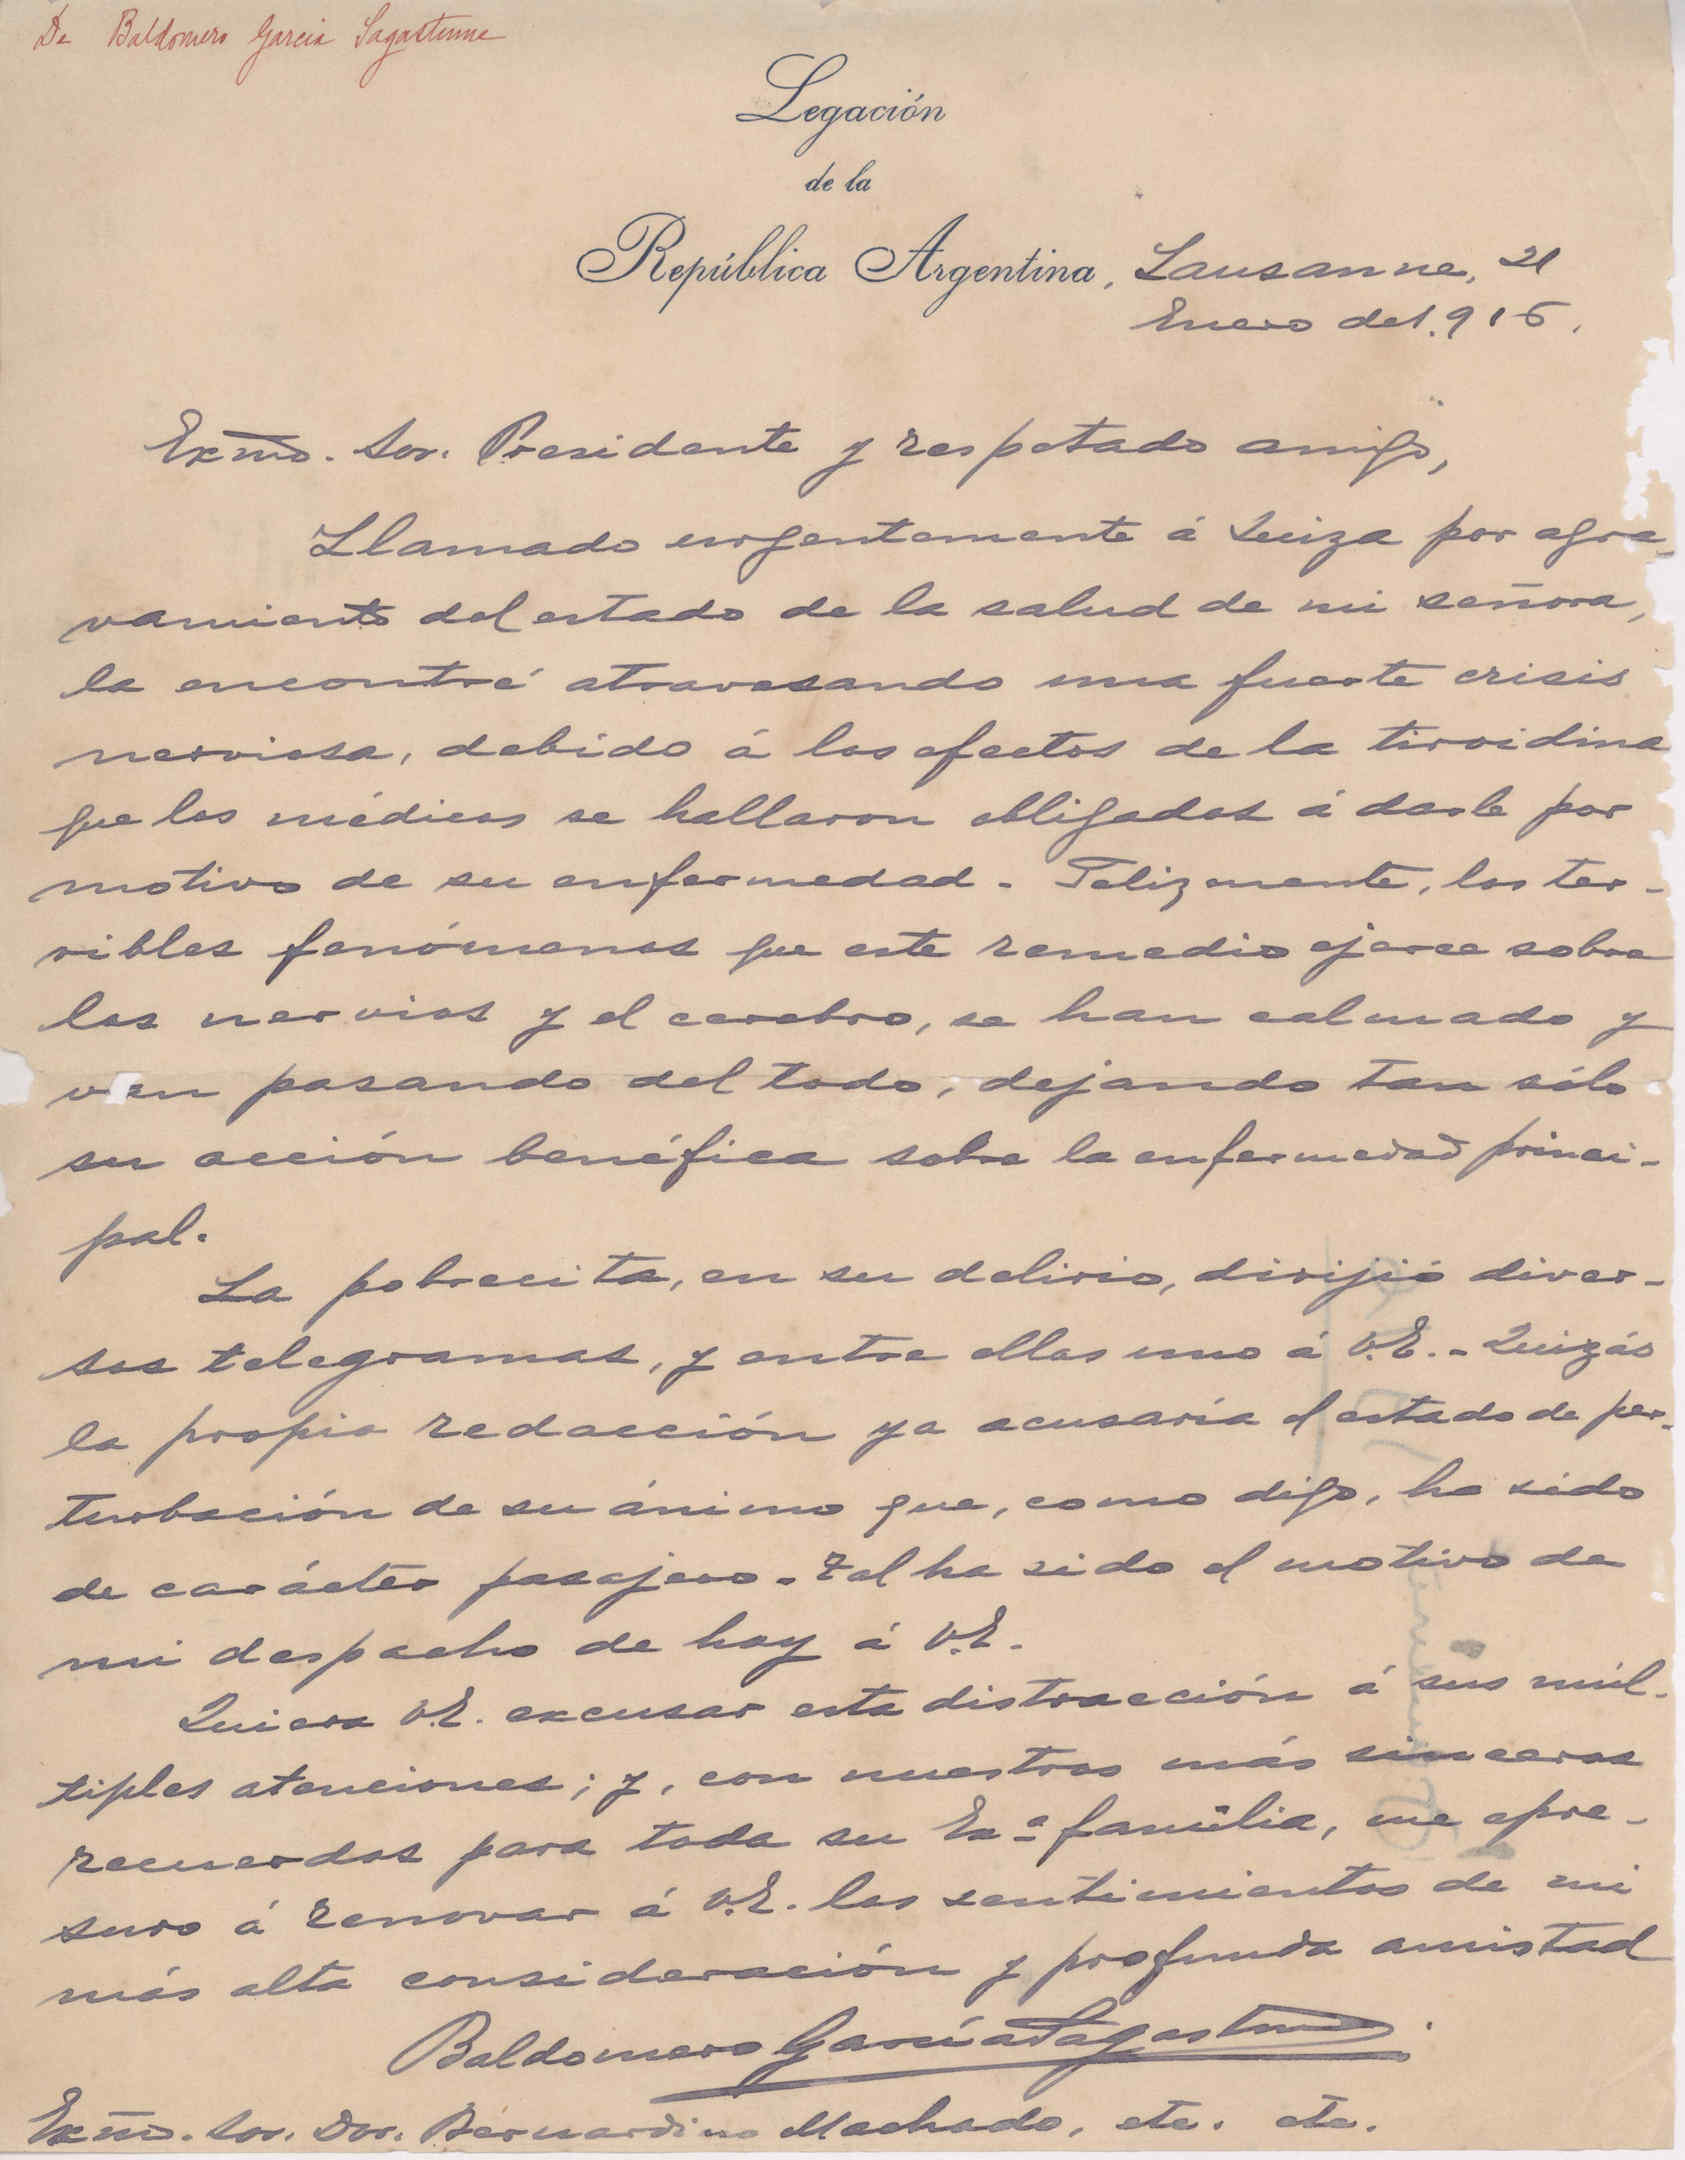 De Baldomero Garcia Sagastume
Legación
de la
República Argentina, Lausanne, 21
Enero de 1.916.
Exmo. Sor. Presidente y respetado amigo,
Llamado urgentemente á Suiza por agra-
vamiento del estado de la salud de mi señora,
la encontré atravesando una fuerte crisis
nerviosa, debido á los efectos de la tiroidina
que los médicos se hallaron obligados á darle por
motivo de su enfermedad. Felizmente, los ter-
ribles fenómenos que este remedio ejerce sobre
los nervios y el cerebro, se han calmado y
van pasando del todo, dejando tan sólo
su acción benéfica sobre la enfermedad princi-
pal.
La pobrecita, en su delirio, dirijió diver-
sos telegramas, y entre ellos uno á V.E. - Quizás
la propia redacción ya acusaría el estado de per-
turbación de su ánimo que, como digo, ha sido
de carácter pasajero. Tal ha sido el motivo de
mi despacho de hoy á V.E.
Quiera V.E. excusar esta distracción á sus múl-
tiples atenciones; y, con nuestros más sinceros
recuerdos para toda su Exª família, me apre-
suro á renovar á V.E. los sentimientos de mi
más alta consideración y profunda amistad
Baldomero García Sagastume.
Exmo. Sor. Dor. Bernardino Machado, etc. etc.